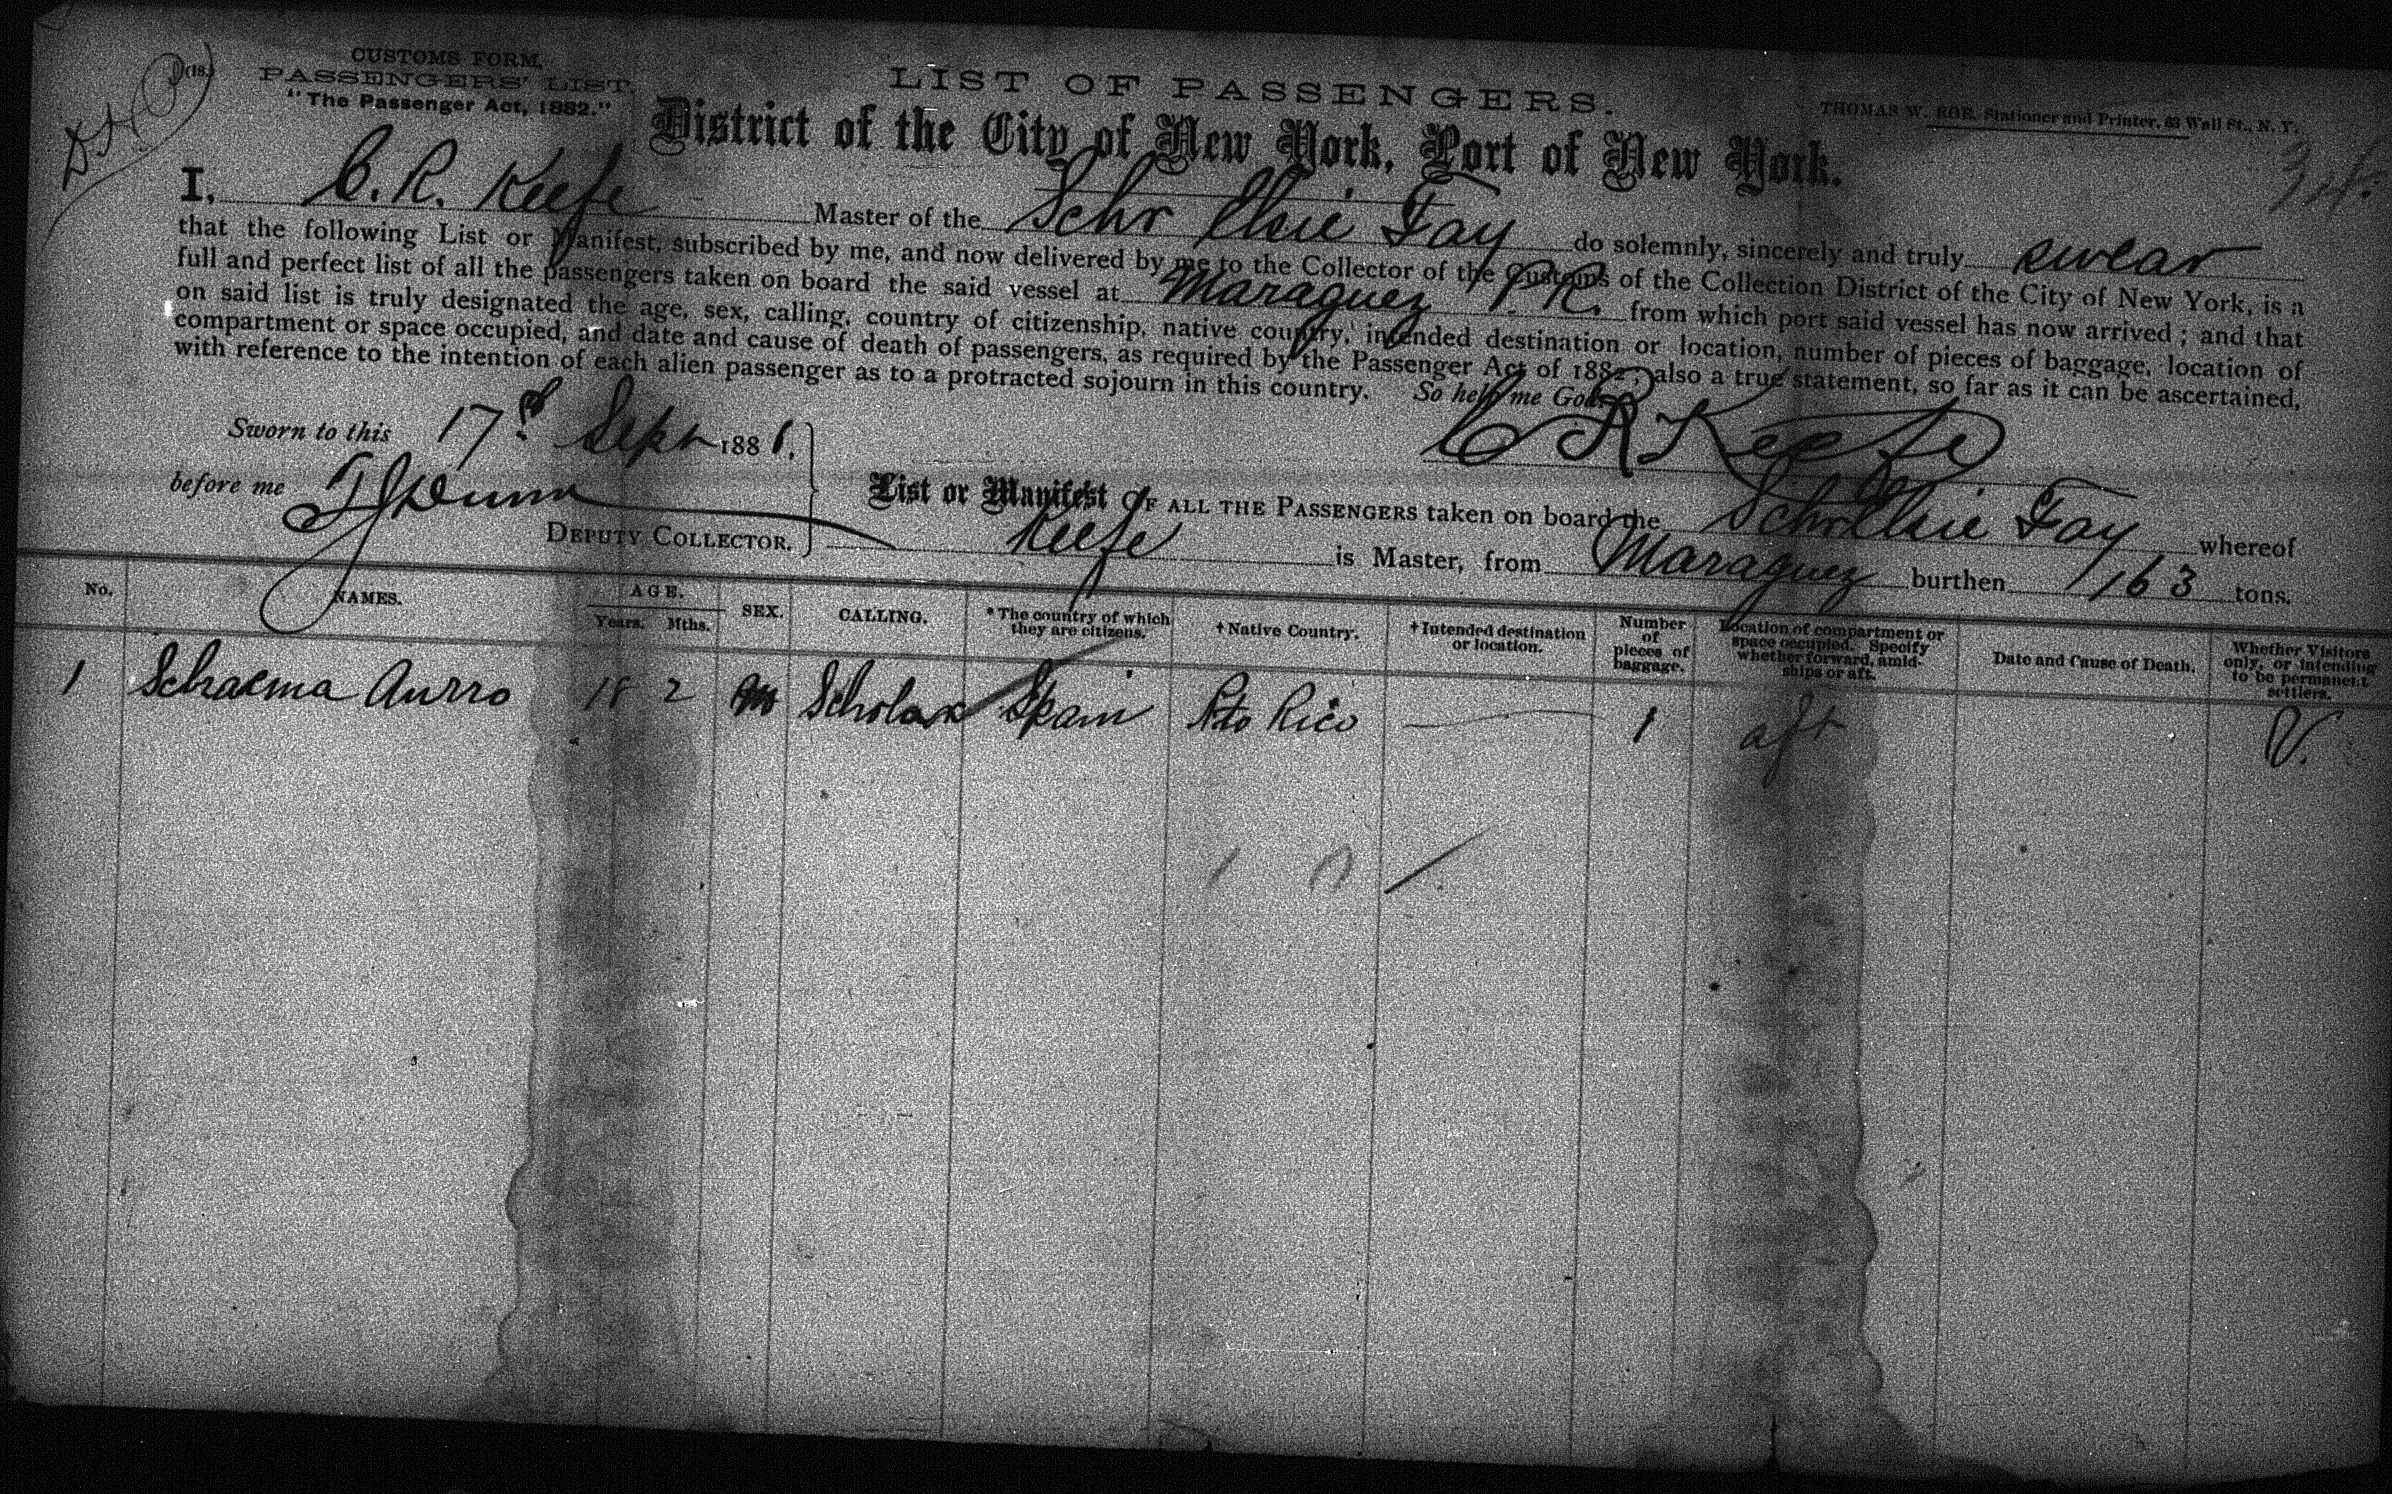 (18.)
CUSTOMS FORM.
PASSENGERS' LIST.
"The Passenger Act, 1882."
LIST OF PASSENGERS.
THOMAS W. ROE, Stationer and Printer, 63 Wall St., N. Y.
District of the City of New York, Port of New York.
I, C. R. Keefe Master of the Schr Elsie Fay do solemnly, sincerely and truly swear
that the following List or Manifest, subscribed by me, and now delivered by me to the Collector of the Customs of the Collection District of the City of New York, is a
full and perfect list of all the passengers taken on board the said vessel at Maraguez P.R. from which port said vessel has now arrived; and that
on said list is truly designated the age, sex, calling, country of citizenship, native country, intended destination or location, number of pieces of baggage, location of
compartment or space occupied, and date and cause of death of passengers, as required by the Passenger Act of 1882; also a true statement, so far as it can be ascertained,
with reference to the intention of each alien passenger as to a protracted sojourn in this country. So help me God.
C R Keefe
Sworn to this 17th Sept 1886.
before me T J Dunn
DEPUTY COLLECTOR.
List or Manifest OF ALL THE PASSENGERS taken on board the Schr Elsie Fay whereof
Keefe is Master, from Maraguez burthen 163 tons.
No. NAMES. AGE. Years. Mths. SEX. CALLING. *The country of which they are citizens. †Native Country. †Intended destination or location. Number of pieces of baggage. Location of compartment or space occupied. Specify whether forward, amidships or aft. Date and Cause of Death. Whether Visitors only, or intending to be permanent settlers.
1 Schaema Aurro 18 2 m Scholar Spain Pto Rico — 1 aft V.